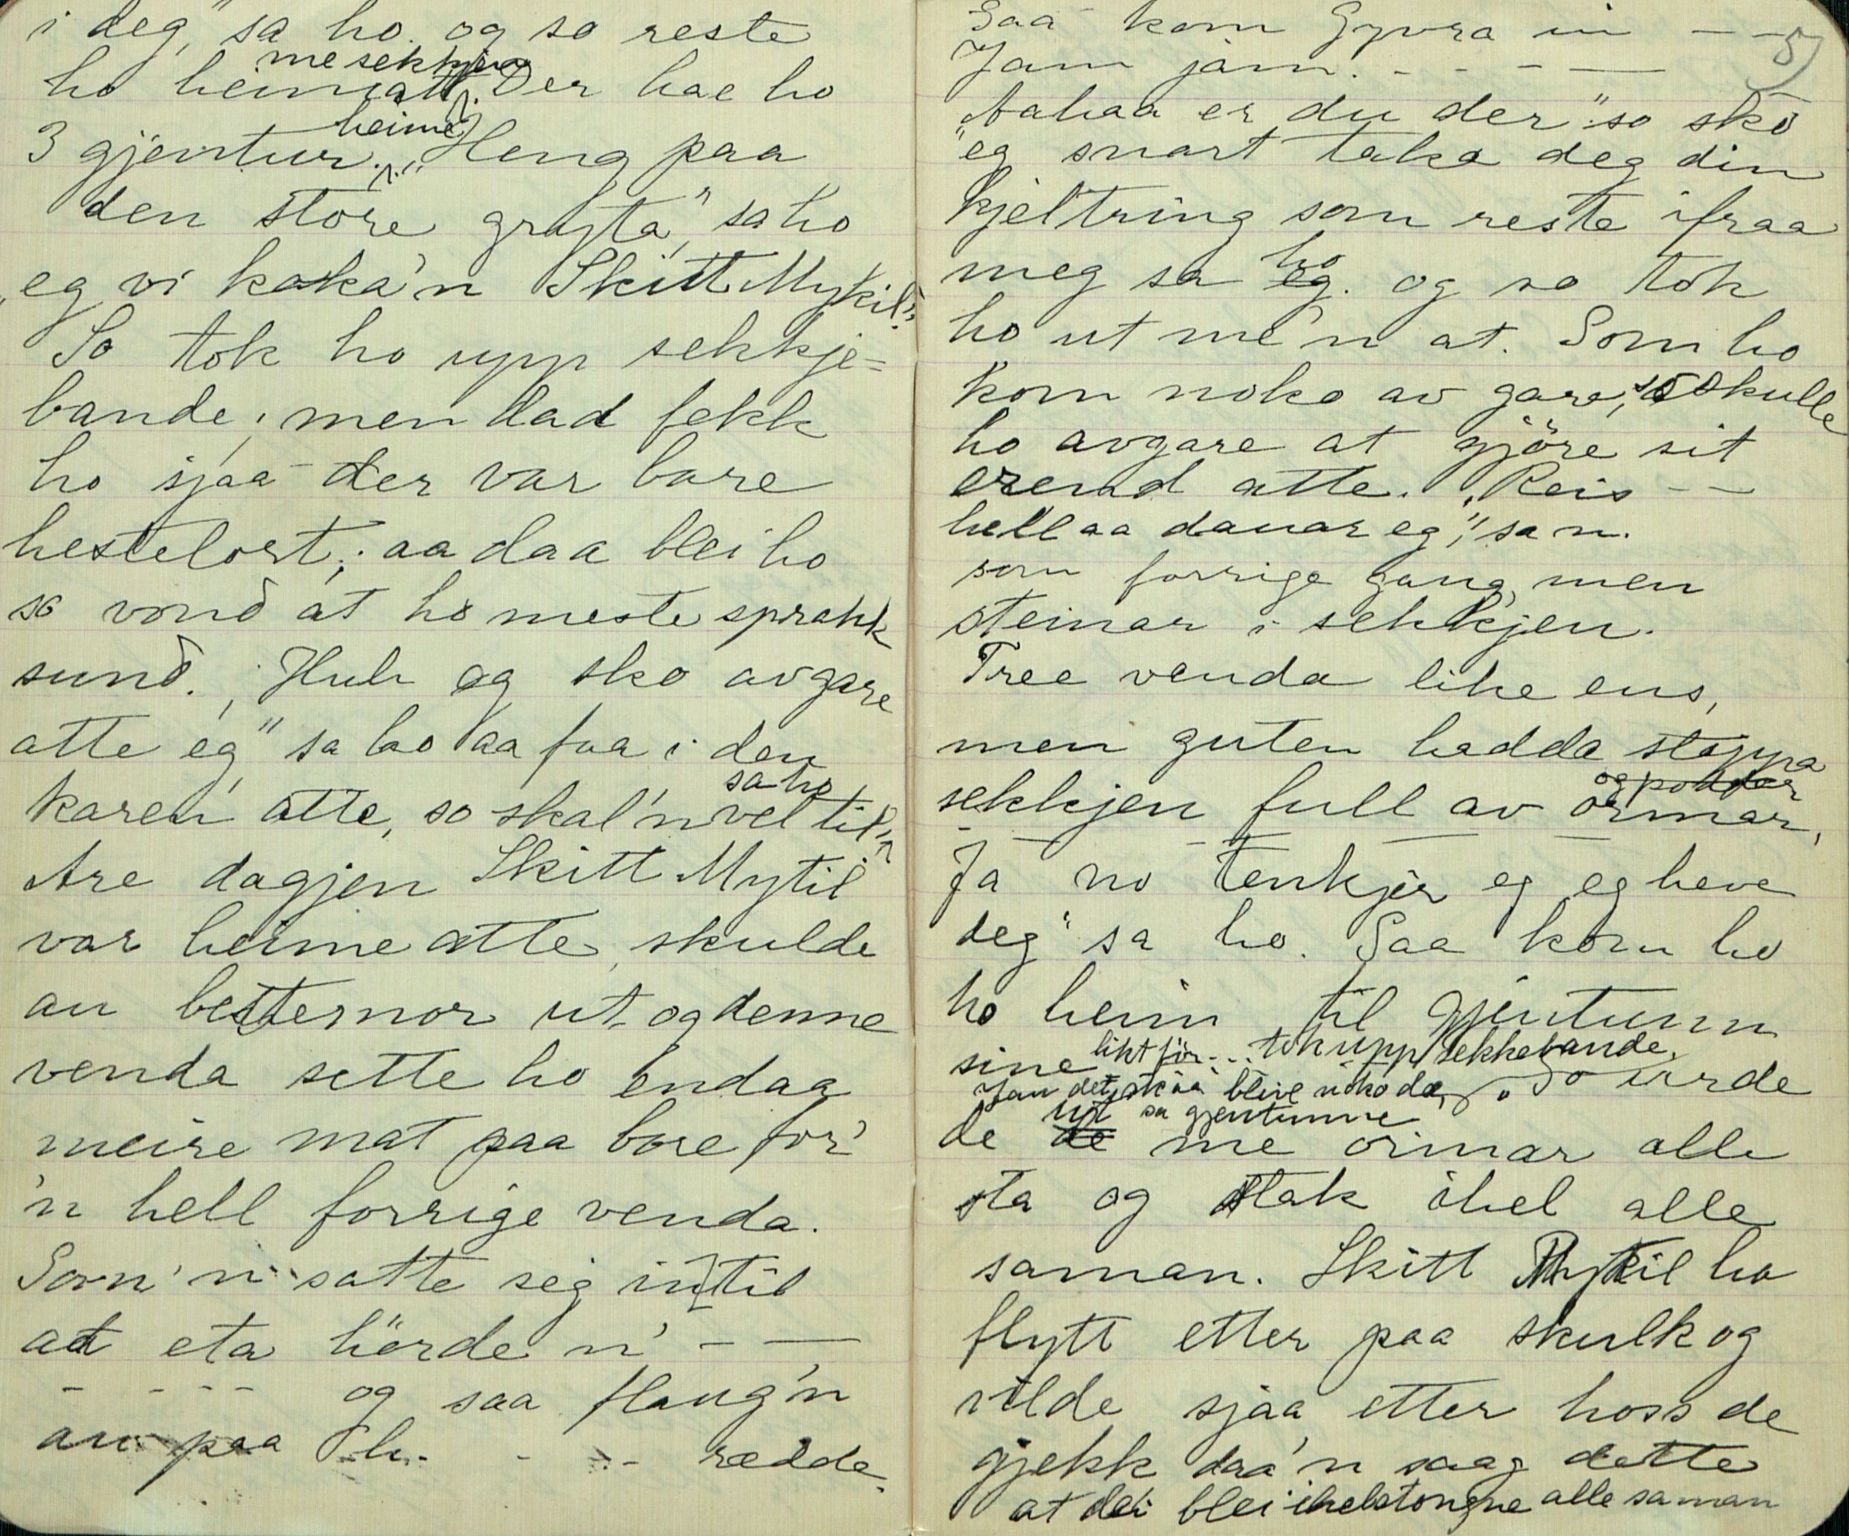 i deg," sa ho. og so reste
me sekkjen
ho heimatt. Der hae ho
heime
3 gjentur. "Heng paa
den store gryta," sa ho
"eg vi koka'n Skitt Mykil."
So tok ho upp sekkje=
bande; men dad fekk
ho sjaa der var bare
hestelort; aa daa blei ho
so vond at ho meste sprakk
sund. "Huh eg sko avgare
atte eg" sa ho aa faa i den
sa ho
karen atte, so skal'n vel til"
Are dagjen Skitt Mytil
var heime atte, skulde
an bestemor ut og denne
venda sette ho endaa
meire mat paa bore for'
'n hell forrige venda.
Som 'n satte seg in til
at eta hörde n' - —
- - - - og saa flaug'n
an paa h. - - - redde.
5
Saa kom Gyvra in - -
Jam jam. - - - —
"Aahaa er du der" so sko
"eg snart taka deg din
kjeltring som reste ifraa
ho
meg sa eg. og so tok
ho ut me'n at. Som ho
kom noko av gare, so skulle
ho avgare at gjöre sit
erend atte. "Reis —
hell aa dauar eg," sa n.
som forrige gang, men
steinar i sekkjen.
Tree venda like ens,
men guten hadde stappa
og podder
sekkjen full av ormar,
Ja no tenkjer eg eg heve
deg" sa ho. Saa kom ho
ho heim til gjentunn
sine likt för... tok upp sekkebande.
Jau det skaa blive noko da, So urde
ut sa gjentunne
de de me ormar alle
sta og stak ihel alle
saman. Skitt Mykil ha
flytt etter paa skulk og
vilde sjaa etter hoss de
gjekk daa'n saag dette
at dei blei ihelstongne alle saman